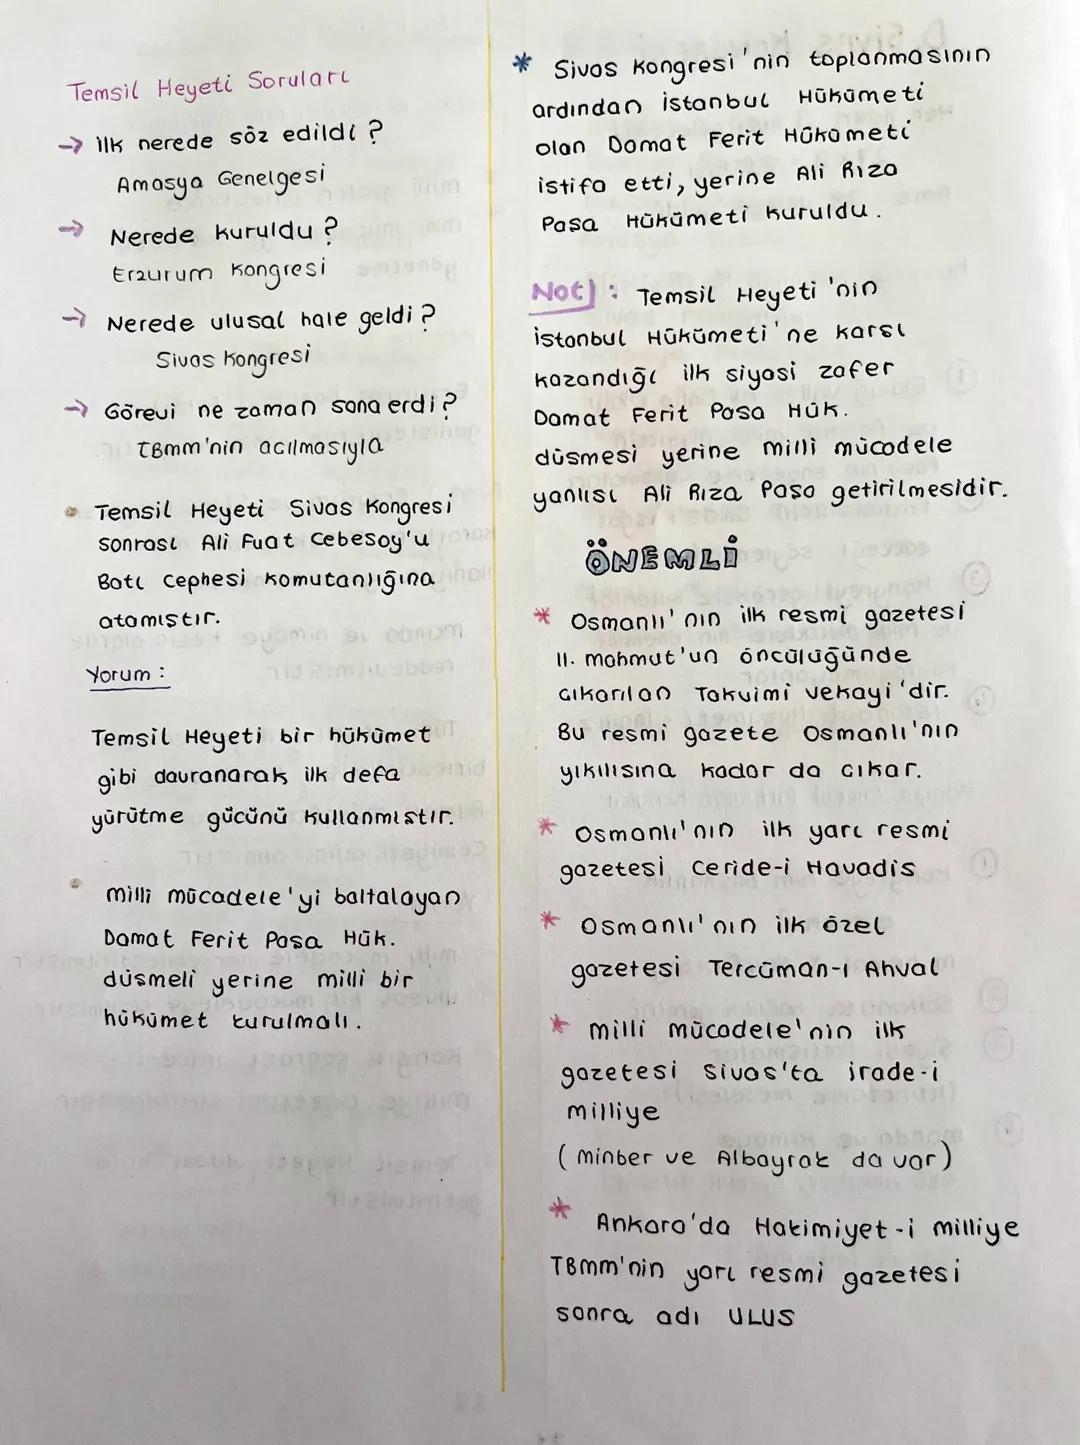 Temsil Heyeti Soruları
→ ilk nerede söz edildi ?
Amasya Genelgesi
→ Nerede kuruldu ?
Erzurum Kongresi
→ Nerede ulusal hale geldi ?
Sivas Kongresi
→ Görevi ne zaman sona erdi ?
TBMM'nin acılmasıyla
• Temsil Heyeti Sivas Kongresi
sonrası Ali Fuat Cebesoy'u
Batı Cephesi Komutanlığına
atamıstır.
Yorum :
Temsil Heyeti bir hükümet
gibi davranarak ilk defa
yürütme gücünü kullanmıstır.
• milli mücadele'yi baltalayan
Damat Ferit Pasa Hük.
düsmeli yerine milli bir
hükümet kurulmalı.
* Sivas Kongresi'nin toplanmasının
ardından istanbul Hükümeti
olan Damat Ferit Hükümeti
istifa etti, yerine Ali Rıza
Pasa Hükümeti kuruldu.
Not) : Temsil Heyeti 'nin
istanbul Hükümeti'ne karsı
kazandığı ilk siyasi zafer
Damat Ferit Pasa Hük.
düsmesi yerine milli mücadele
yanlısı Ali Rıza Pasa getirilmesidir.
ÖNEMLİ
* Osmanlı'nın ilk resmi gazetesi
II. mahmut'un öncülüğünde
cıkarılan Takvimi vekayi'dir.
Bu resmi gazete Osmanlı'nın
yıkılısına kadar da cıkar.
* Osmanlı'nın ilk yarı resmi
gazetesi Ceride-i Havadis
* Osmanlı'nın ilk özel
gazetesi Tercüman-ı Ahval
* milli mücadele'nin ilk
gazetesi Sivas'ta irade-i
milliye
( minber ve Albayrak da var)
* Ankara'da Hakimiyet-i milliye
TBMM'nin yarı resmi gazetesi
sonra adı ULUS